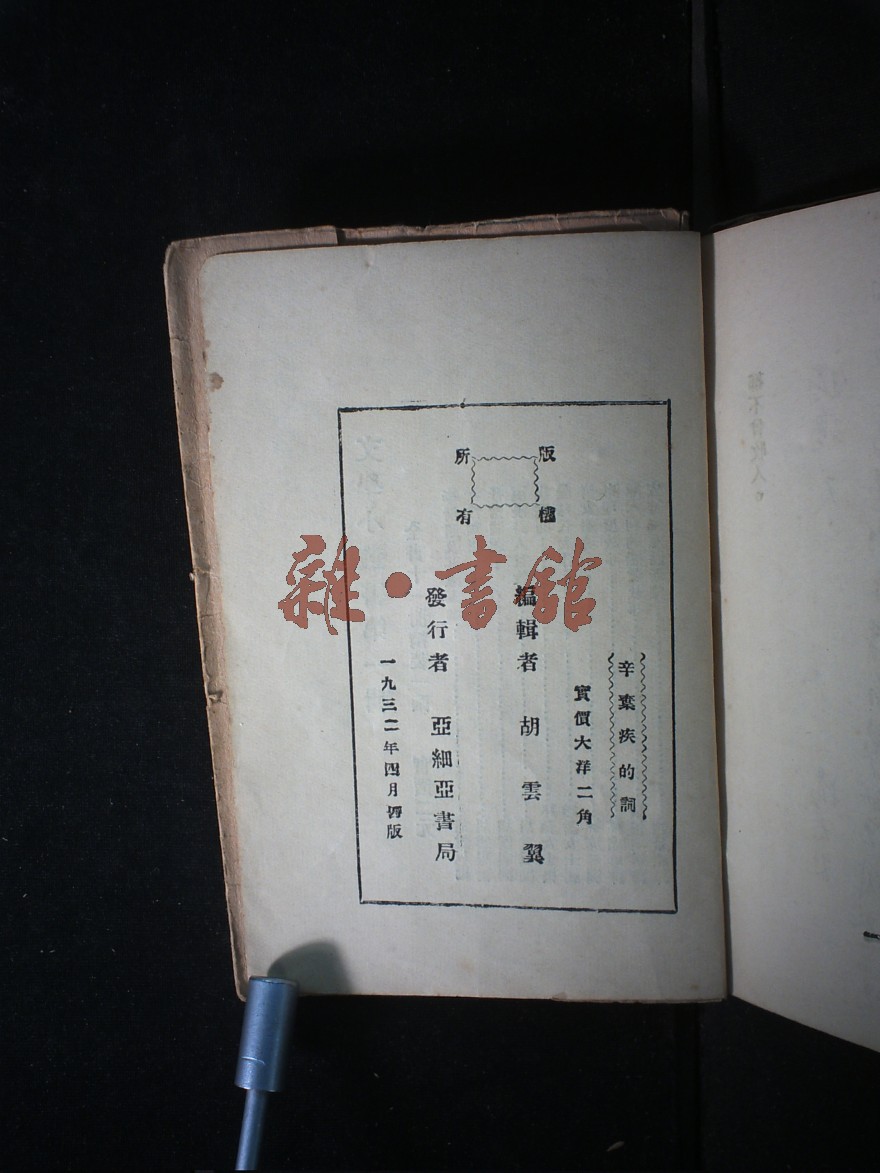 版權
所有
辛棄疾的詞
實價大洋二角
編輯者 胡雲翼
發行者 亞細亞書局
一九三二年四月初版
雜·書館